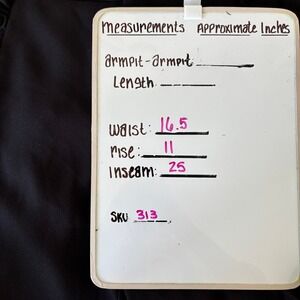 measurements Approximate Inches
armpit-armpit
Length
Waist: 16.5
rise: 11
Inseam: 25
SKU 313